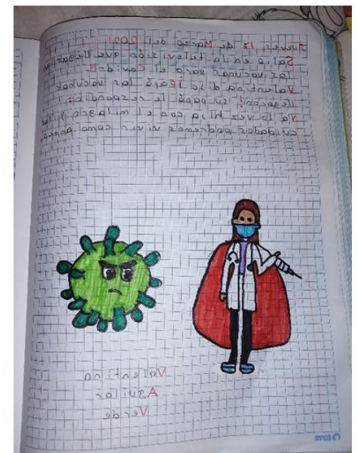 Jueves 12 de Marzo del 2021
Salió en la televisión que llegaron
las vacunas para el Covid-19
Valentina dijo ¡papá las vacunas
llegaron! su papá le respondió:
Ya lo vez hija con el milagro y los
cuidados podremos vivir como antes.
Valentina
Aguilar
Verde